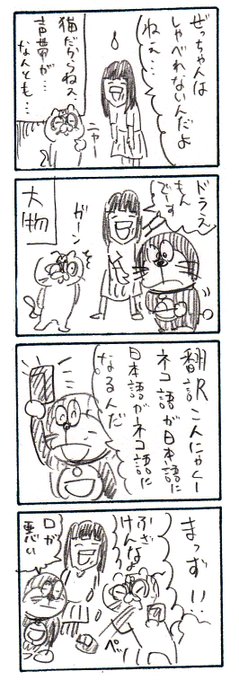 ぜっちゃんは
しゃべれないんだよ
ねぇ…
猫だからねえ
声帯が…
なんとも…
ニャー
ドラえ
もん
でーす
ガーン
大物
翻訳こんにゃくー
ネコ語が日本語に
日本語がネコ語に
なるんだ
まっずい!!
ふざ
けんな
ペッ
口が
悪い